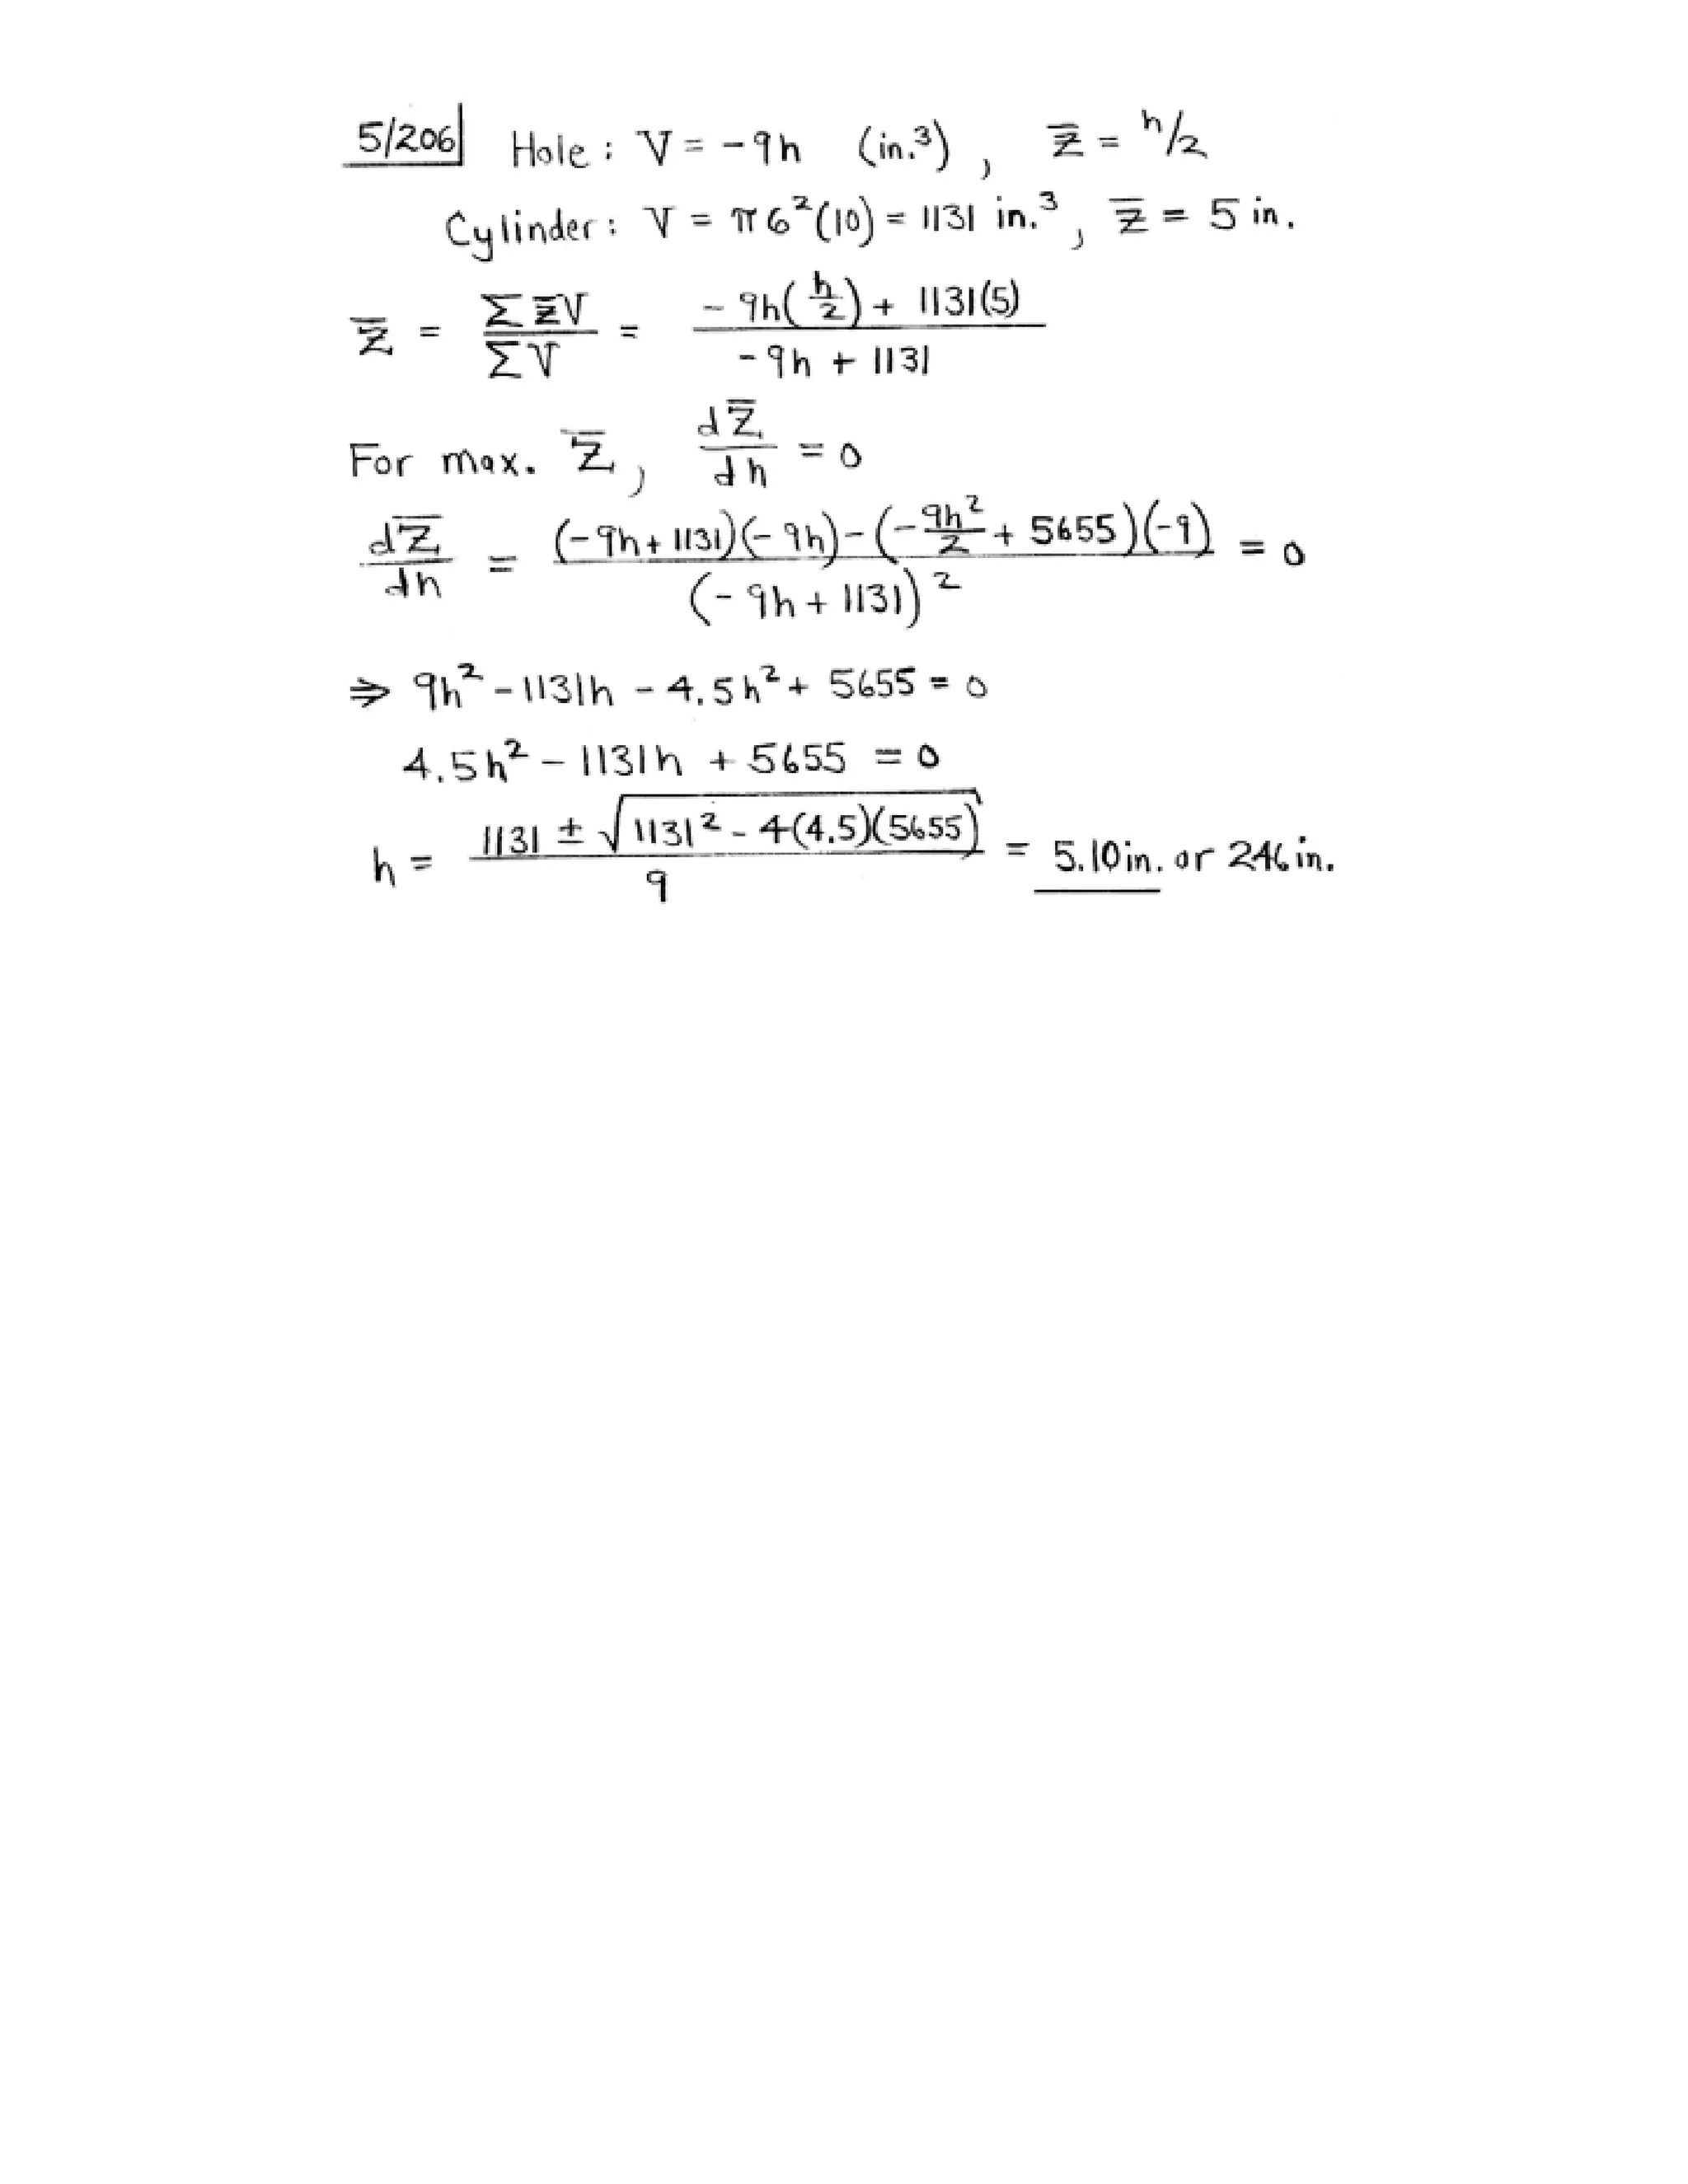 5/206 Hole : V = -9h (in.³) , z̅ = h/2
Cylinder : V = π6²(10) = 1131 in.³, z̅ = 5 in.
Z̅ = Σz̅V / ΣV = (-9h(h/2) + 1131(5)) / (-9h + 1131)
For max. Z̅, dZ̅/dh = 0
dZ̅/dh = ((-9h + 1131)(-9h) - (-9h²/2 + 5655)(-9)) / (-9h + 1131)² = 0
⇒ 9h² - 1131h - 4.5h² + 5655 = 0
4.5h² - 1131h + 5655 = 0
h = (1131 ± √(1131² - 4(4.5)(5655))) / 9 = 5.10 in. or 246 in.